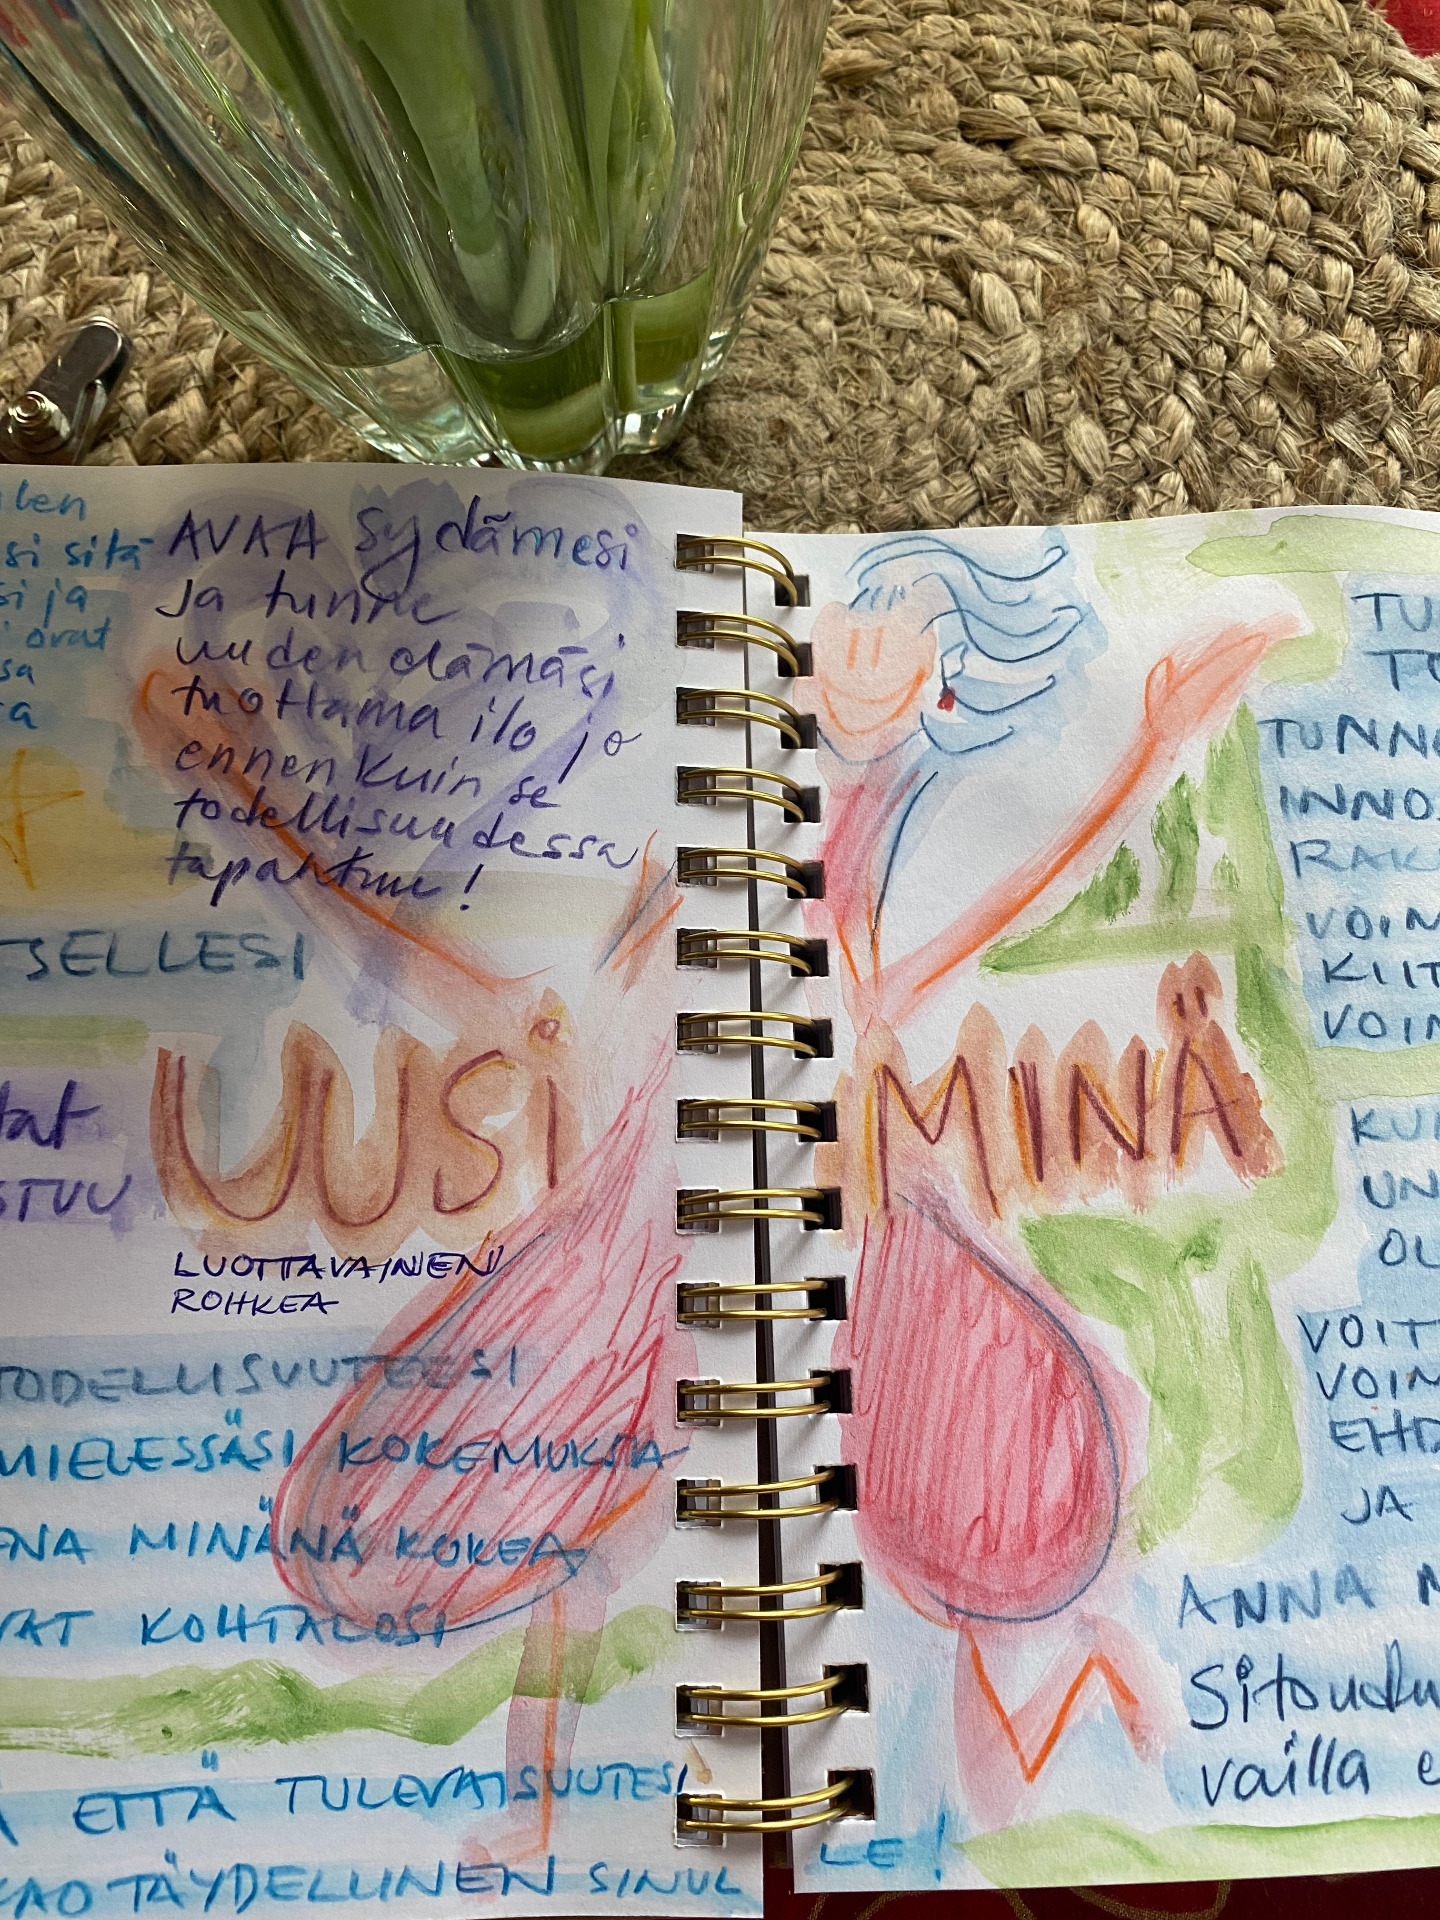 si sitä
si ja
ovat
AVAA sydämesi
ja tunne
uuden elämäsi
tuottama ilo jo
ennen kuin se
todellisuudessa
tapahtuu!
TSELLESI
tat
STUU
UUSI MINÄ
LUOTTAVAINEN
ROHKEA
TODELLISUUTEESI
MIELESSÄSI KOKEMUKSIA
NA MINÄNÄ KOKEA
VAT KOHTALOSI
ETTÄ TULEVAISUUTESI
KAO TÄYDELLINEN SINUL
LE!
TU
TU
TUNN
INNOS
RAK
VOIM
KIIT
VOIM
KUI
UN
OL
VOIT
VOIM
EHD
JA
ANNA M
Sitoudu
vailla e